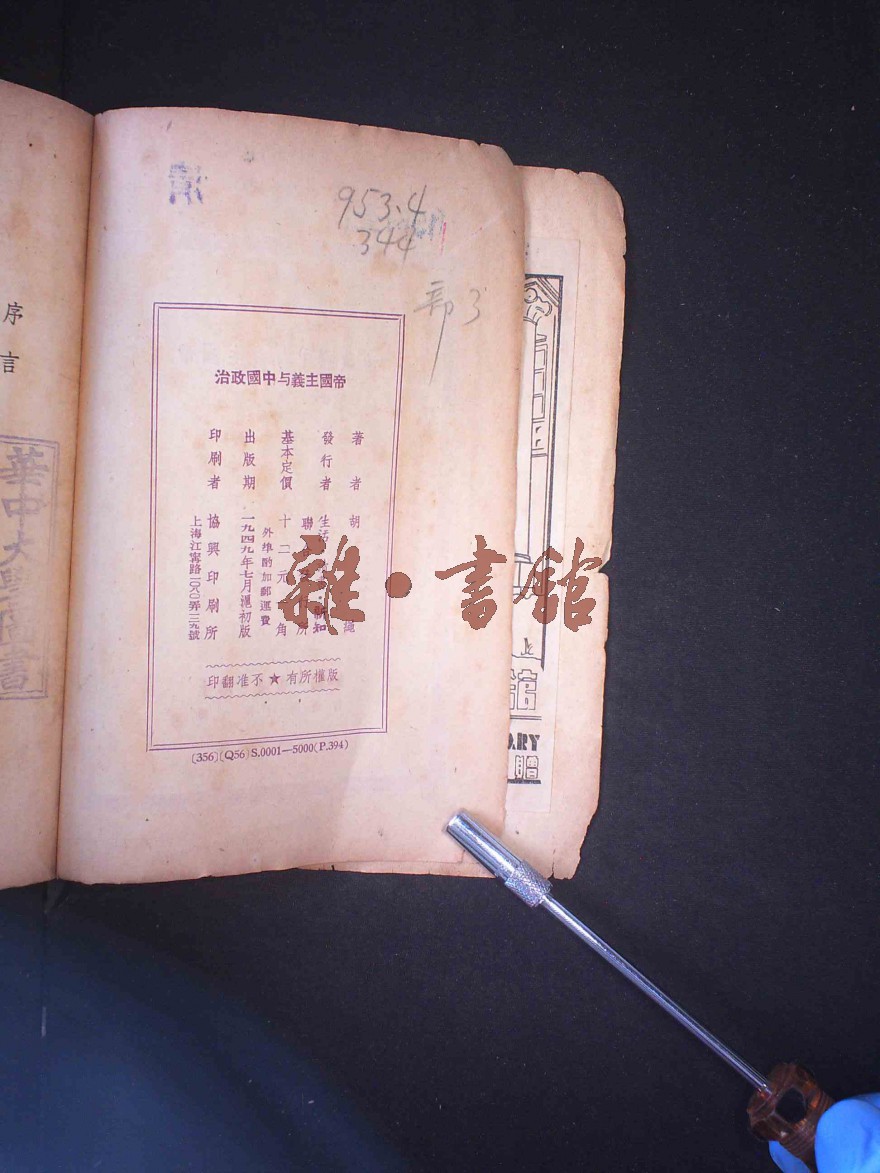 953.4
344
3
帝國主義与中國政治
著者 胡 繩
發行者 生活 新知
聯 所
基本定價 十二元 角
外埠酌加郵運費
出版期 一九四九年七月滬初版
印刷者 協興印刷所
上海江寧路一〇六〇弄三九號
版權所有★不准翻印
(356)(Q56)S.0001—5000(P.394)
序言
華中大學圖書
雜·書館
上
館
贈